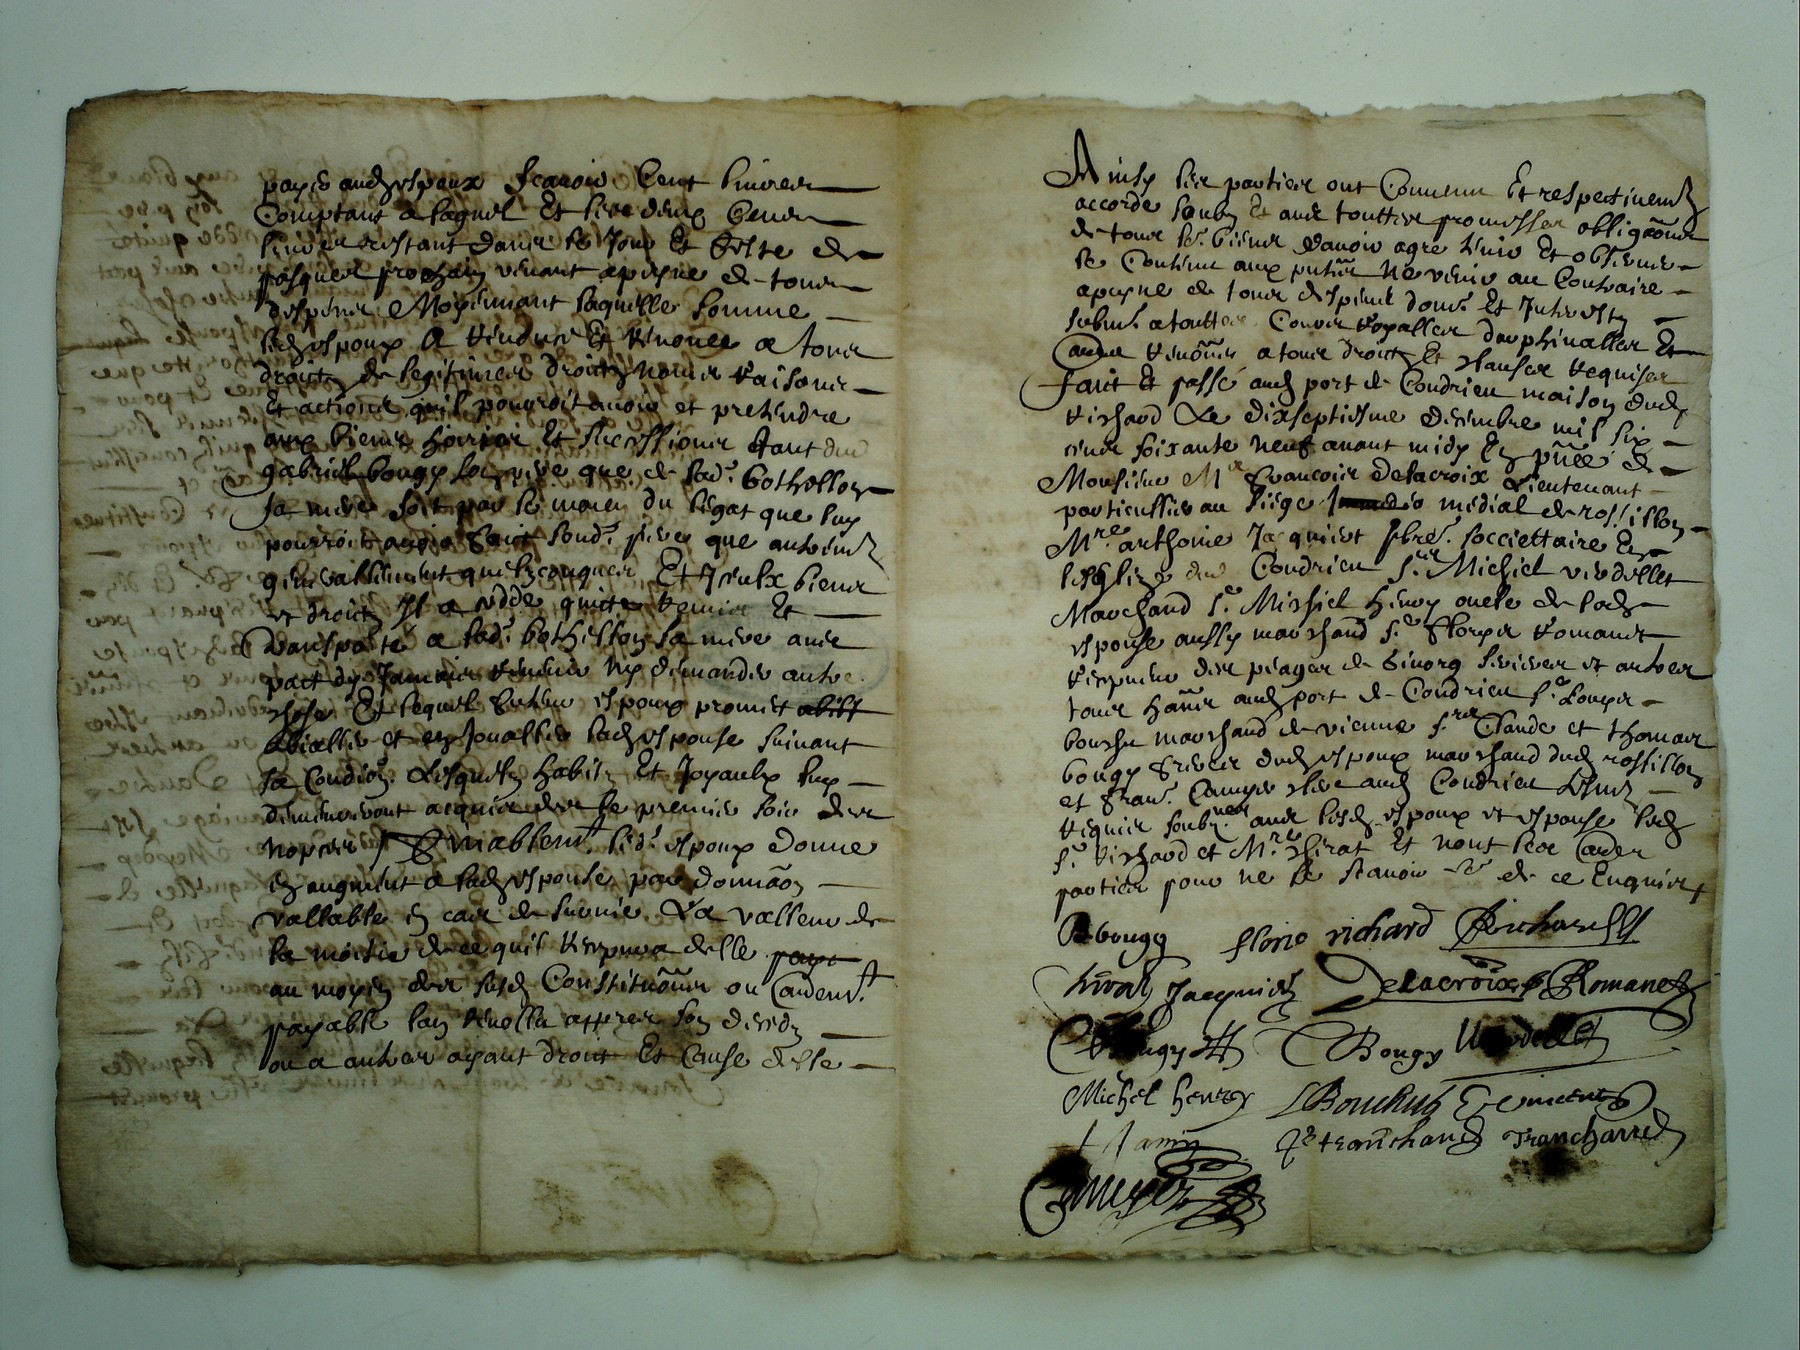 payés aud espoux scavoir Cent livres
Comptant a laquel Et les deux Cens
livres restant dans le Jour Et feste de
pasques prochain venant a peyne de tous
despens Moyennant laquelle somme
led espoux A Renducé Et Renonce a tous
droitz de legitimes droitz noms Raisons
Et actions quil pourroit avoir et pretendre
aux biens hoiries Et successions tant dud
gabriel bougy son pere que de lad. bothellon
sa mere soit par le moien du legat que luy
pourroit avoir faict sond. pere que autrem.t
generallement quelzconques Et Iceulx biens
et droitz Il a cddé quitte Remis Et
Transporté a lad. bothellon sa mere avec
pact de Jamais Revenir ny demander autre
chose Et lequel futur espoux promet abill
abiallir et enJouallir lad espouse suivant
sa Condion. Lesquelz habitz Et Joyaulx luy
demeureront acquis des le premier soir des
nopces / Semablem.t led. espoux donne
en augment a lad espouse par donnaon
vallable en cas de survie La valleur de
la moitie de ce quil Recepvra delle paya
au moyen des susd Constituons ou Cardem.t
payable lan Revollu appres son deceds
ou a autres ayant droit Et Cause delle
Ainsy les parties ont Convenu Et respectivem.t
accordé soubz Et avec touttes promesses obligaons
de tous les. biens davoir agre tenir Et observer
le Contenu aux pntes ne venir au Contraire
a peyne de tous despens dom.s Et Interestz
submi. a touttes Cours Royalles dauphinalles Et
Cardes Renons a tous droitz Et Clauses Requises
faict Et passé aud port de Condrieu maison dud
Richard Le dixseptiesme decembre mil six
cens soixante neuf avant midy En pnce de
Monsieur M.e Francois Delacroix Lieutenant
particullier au siege medial de rossillon
M.re anthoine Jaquiet pbre. socciettaire En
lesglize dud Condrieu s.r Michiel verdellet
Marchand s.r Michiel henry oncle de lad
espouse aussy marchand s.r Romanet
Recepveur des peages de rivieres et autres
tous hans aud port de Condrieu s.r Louys
bouchu marchand de vienne s.rs Claude et thomas
bougy freres dud espoux marchand dud rossillon
et Fran. Camyer clerc aud Condrieu tesmz
Requis soubz.nes avec lesd espoux et espouse led
s.r Richard et M.re Chirat Et nont les autres
parties pour ne le scavoir de ce Enquis
Bougy florie richard Richard
Chirat Jacquiet Delacroix Romanet
Bougy Bougy Verdellet
Michel henry LBouchu Vincent
Jamy tranchand Tranchand
Camyer